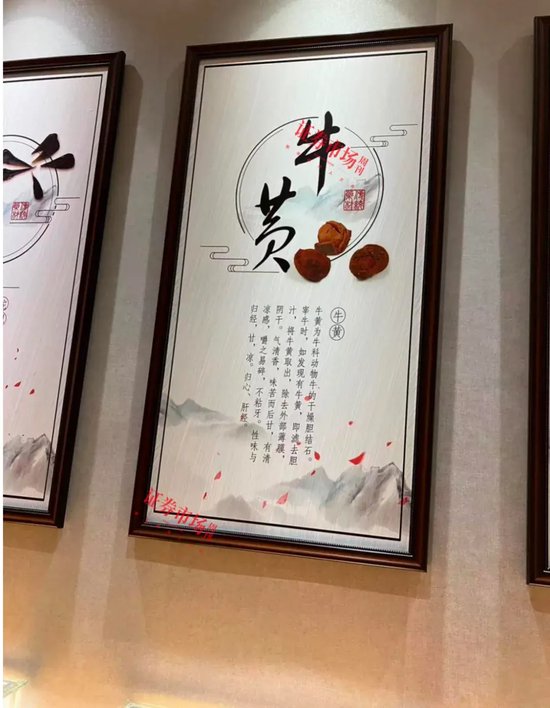 牛黄
证券市场周刊
牛黄
牛黄为牛科动物牛的干燥胆结石。
宰牛时，如发现有牛黄，即滤去胆
汁，将牛黄取出，除去外部薄膜，
阴干。气清香，味苦而后甘，有清
凉感，嚼之易碎，不粘牙。性味与
归经，甘，凉。归心、肝经。
证券市场周刊